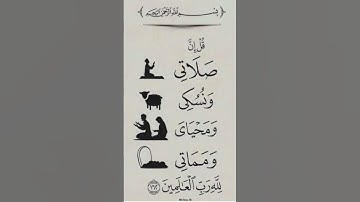 ﴿ بِسْمِ اللَّهِ الرَّحْمَٰنِ الرَّحِيمِ ﴾
قُلْ إِنَّ
صَلَاتِي
وَنُسُكِي
وَمَحْيَايَ
وَمَمَاتِي
لِلَّهِ رَبِّ الْعَالَمِينَ ﴿١٦٢﴾